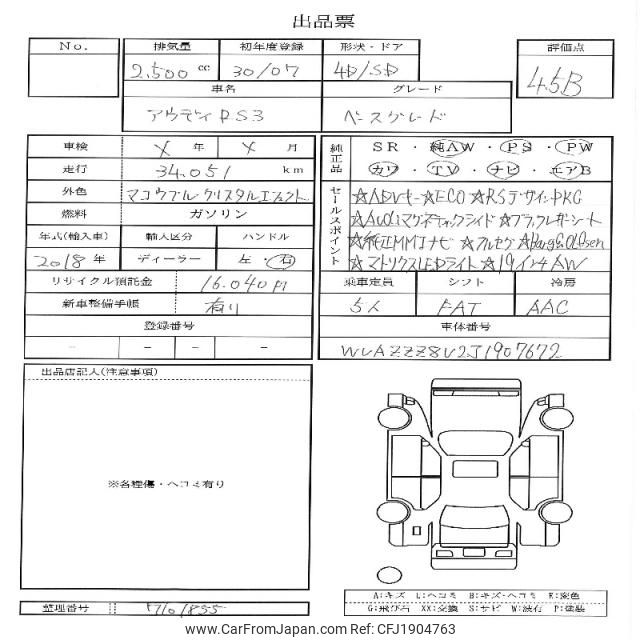 出品票
No.
排気量 初年度登録 形状・ドア 評価点
2,500 cc 30/07 4D/SD 4.5B
車名 グレード
アウディ RS3 ベースグレード
車検 X 年 X 月
走行 34,051 km
外色 マコウブルークリスタルエフェクト
燃料 ガソリン
年式(輸入車) 輸入区分 ハンドル
2018年 ディーラー 左・右
リサイクル預託金 16,040円
新車整備手帳 有り
登録番号
- - - -
純正品
SR・純AW・PS・PW
カワ・TV・ナビ・エアB
セールスポイント
☆ADVキー☆ECO☆RSデザインPKG
☆Audiマグネティックライド☆ブラックレザーシート
☆純正MMIナビ☆フルセグ☆Bang&Olufsen
☆マトリクスLEDライト☆19インチAW
乗車定員 シフト 冷房
5人 FAT AAC
車体番号
WUAZZZ8V2J1907672
出品店記入(注意事項)
※各種傷・ヘコミ有り
A:キズ L:ヘコミ B:キズ・ヘコミ K:変色
G:飛び石 XX:交換 S:サビ W:波打 P:塗装
整理番号 7101855
www.CarFromJapan.com - CFJ1904763